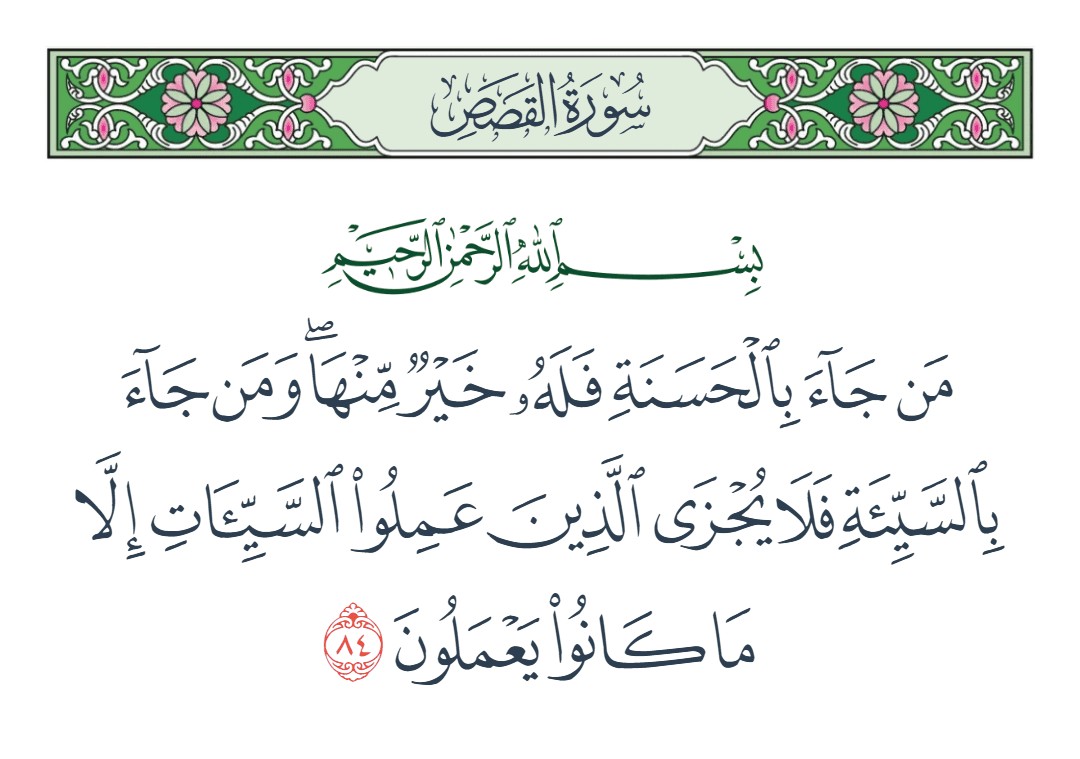 سُورَةُ القَصَصِ
بِسْمِ ٱللَّهِ ٱلرَّحْمَٰنِ ٱلرَّحِيمِ
مَن جَآءَ بِٱلْحَسَنَةِ فَلَهُۥ خَيْرٌۭ مِّنْهَا ۖ وَمَن جَآءَ
بِٱلسَّيِّئَةِ فَلَا يُجْزَى ٱلَّذِينَ عَمِلُوا۟ ٱلسَّيِّـَٔاتِ إِلَّا
مَا كَانُوا۟ يَعْمَلُونَ ٨٤